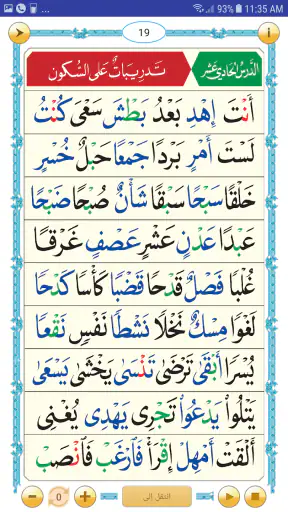 93% 11:35 AM
19
الدَّرْسُ الحَادِيْ عَشَرْ
تَدرِيبَاتٌ عَلى السُّكُون
أَنْتَ إِهْدِ بَعْدُ بَطْشَ سَعْىَ كُنْتُ
لَسْتَ أَمْرٍ بَرْدًا جَمْعًا حَبْلٌ خُسْرٍ
خَلْقًا سَبْحًا سَبْقًا شَأْنٌ صُبْحًا ضَبْحًا
عَبْدًا عَدْنٍ عَشْرٍ عَصْفٍ غَرْقًا
غُلْبًا فَصْلٌ قَدْحًا قَضْبًا كَأْسًا كَدْحًا
لَغْوًا مِسْكٌ نَخْلًا نَشْطًا نَفْسٍ نَقْعًا
يُسْرًا أَبْقَى تَرْضَى تَنْسَى يَخْشَى يَسْعَى
يَتْلُوا يَدْعُوا تَجْرِى يَهْدِى يُغْنِى
أَلْقَتْ أَمْهِلْ إِقْرَأْ فَارْغَبْ فَانْصَبْ
0
انتقل إلى